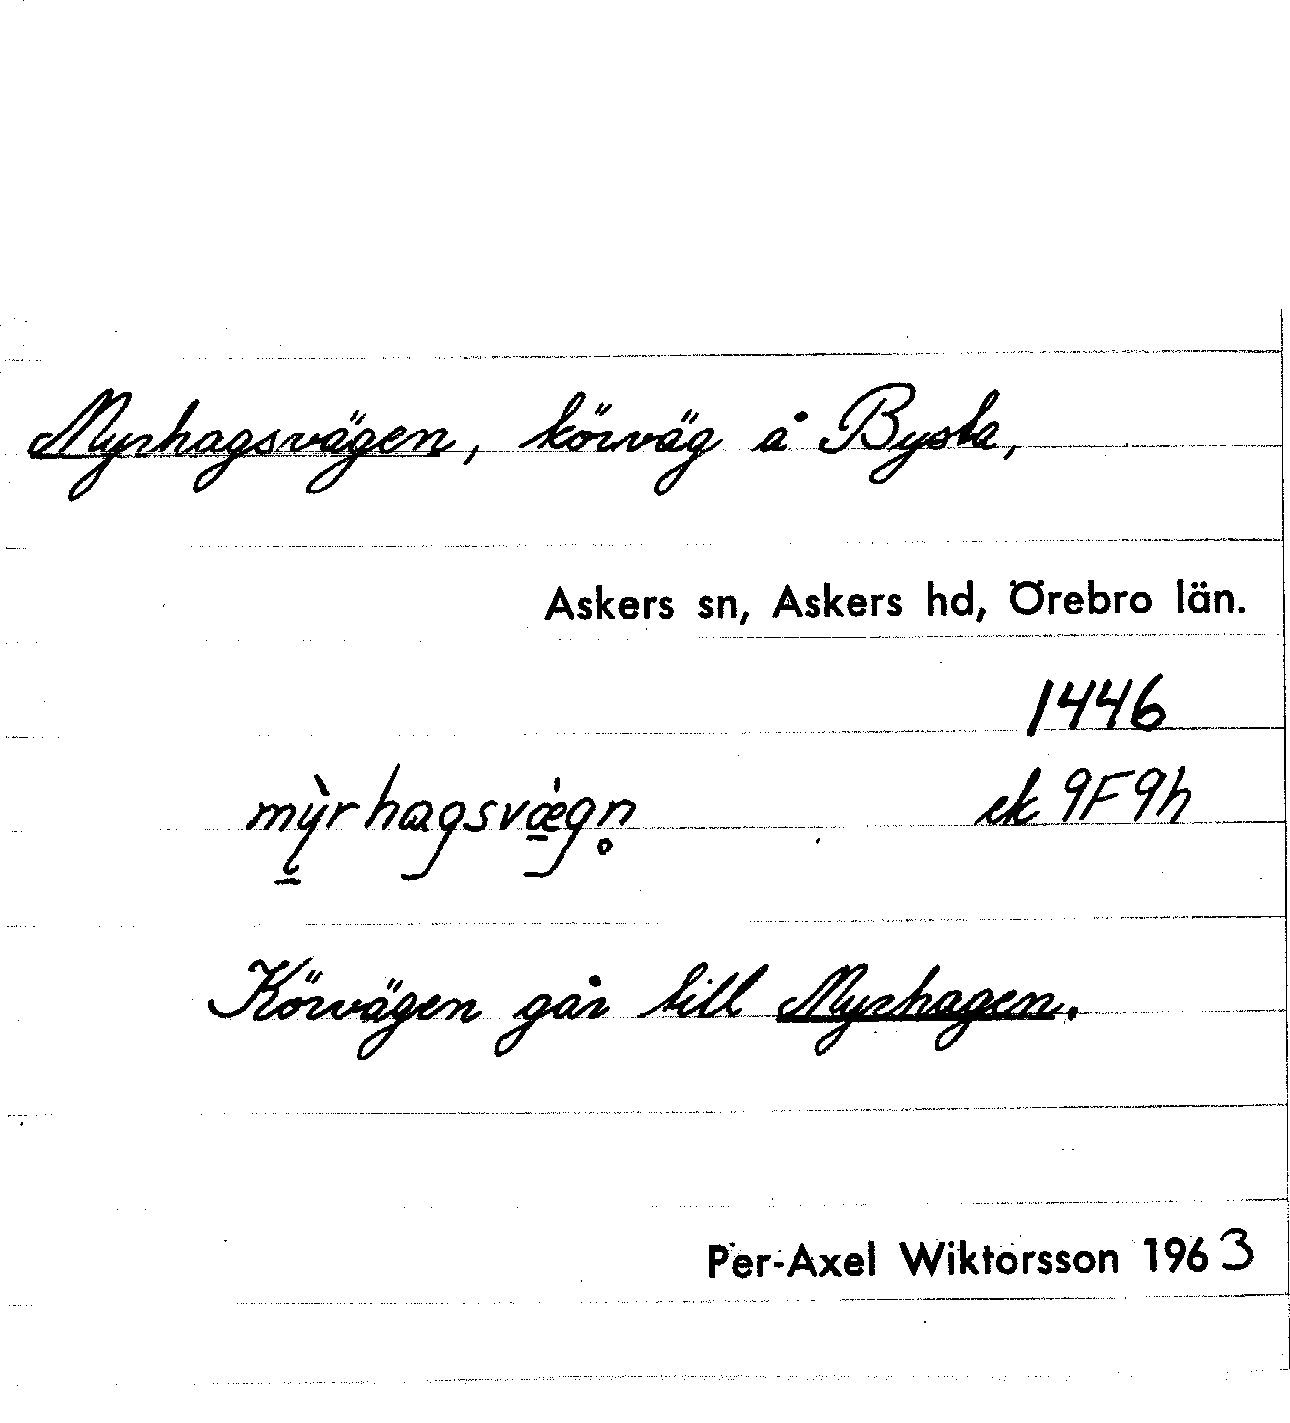 Myrhagsvägen, körväg å Bysta,
Askers sn, Askers hd, Örebro län.
1446
mỳrhagsvǽgn̥ ek 9F9h
Körvägen går till Myrhagen.
Per-Axel Wiktorsson 1963